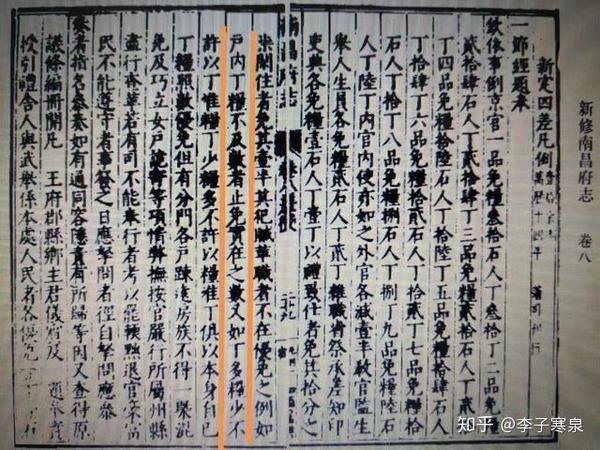 新修南昌府志 卷八
新定四差凡例
萬曆十四年
一節經題奉
欽依事例京官一品免糧叁拾石人丁叁拾丁二品免糧
貳拾肆石人丁貳拾肆丁三品免糧貳拾石人丁貳拾
丁四品免糧拾陸石人丁拾陸丁五品免糧拾肆石人
丁拾肆丁六品免糧拾貳石人丁拾貳丁七品免糧拾
石人丁拾丁八品免糧捌石人丁捌丁九品免糧陸石
人丁陸丁內官內使亦如之外官各減壹半教官監生
舉人生員各免糧貳石人丁貳丁雜職省祭承差知印
吏典各免糧壹石人丁壹丁以禮致仕者免其拾分之
南昌府志 卷八
柒閒住者免其壹半其犯贓革職者不在優免之例如
戶內丁糧不及數者止免實在之數又如丁多糧少不
許以丁准糧丁少糧多不許以糧准丁俱以本身自己
丁糧照數優免但有分門各戶疎遠房族不得一槩混
免及巧立女戶詭寄等項情弊撫按官嚴行所屬州縣
盡行查革若有司不能奉行者考以罷軟黜退官豪富
民不能遵守者事發之日應拏問者徑自拏問應叅
奏者指名叅奏如有通同容隱責有所歸等因又查得原
議條編冊開凡 王府郡縣鄉主君儀賓及
授引禮舍人與武舉係本處人民者各優免
知乎 @李子寒泉